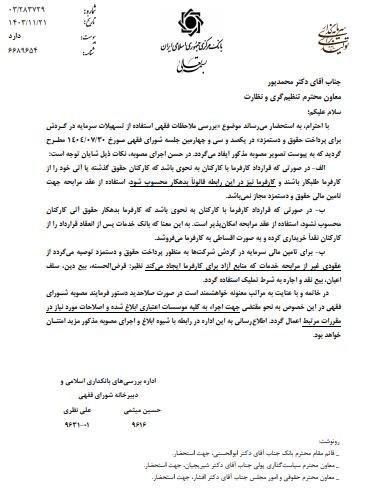 شماره: ۰۳/۲۸۳۷۲۹
تاریخ: ۱۴۰۳/۱۱/۲۱
پیوست: دارد
شناسه: ۶۶۸۹۶۵۴
بانک مرکزی جمهوری اسلامی ایران
بسمه تعالی
جناب آقای دکتر محمدپور
معاون محترم تنظیم‌گری و نظارت
سلام علیکم؛
با احترام، به استحضار می‌رساند موضوع «بررسی ملاحظات فقهی استفاده از تسهیلات سرمایه در گردش
برای پرداخت حقوق و دستمزد» در یکصد و سی و چهارمین جلسه شورای فقهی مورخ ۱۴۰۴/۰۷/۳۰ مطرح
گردید که به پیوست تصویر مصوبه مذکور ایفاد می‌گردد. در حسن اجرای مصوبه، نکات ذیل شایان توجه است:
الف- در صورتی که قرارداد کارفرما با کارکنان به نحوی باشد که کارکنان حقوق گذشته یا آتی خود را از
کارفرما طلبکار باشند و کارفرما نیز در این رابطه قانوناً بدهکار محسوب شود، استفاده از عقد مرابحه جهت
تامین مالی حقوق و دستمزد مجاز نمی‌باشد.
ب- در صورتی که قرارداد کارفرما با کارکنان به نحوی باشد که کارفرما بدهکار حقوق آتی کارکنان
محسوب نشود، استفاده از عقد مرابحه امکان‌پذیر است. به این معنا که بانک خدمات پس از انعقاد قرارداد را از
کارکنان نقداً خریداری کرده و به صورت اقساطی به کارفرما می‌فروشد.
ج- برای تامین مالی سرمایه در گردش شرکت‌ها به منظور پرداخت حقوق و دستمزد توصیه می‌گردد از
عقودی غیر از مرابحه خدمات که منابع آزاد برای کارفرما ایجاد می‌کند نظیر: قرض‌الحسنه، بیع دین، سلف
اعیان، بیع نقد و اجاره به شرط تملیک استفاده گردد.
در خاتمه و با عنایت به مراتب معنونه خواهشمند است در صورت صلاحدید دستور فرمایند مصوبه شورای
فقهی در این خصوص به نحو مقتضی جهت اجراء به کلیه موسسات اعتباری ابلاغ شده و اصلاحات مورد نیاز در
مقررات مرتبط اعمال گردد. اطلاع‌رسانی به این اداره در رابطه با شیوه ابلاغ و اجرای مصوبه مذکور مزید امتنان
خواهد بود.
اداره بررسی‌های بانکداری اسلامی و
دبیرخانه شورای فقهی
حسین میثمی علی نظری
۹۶۱۶ ۹۶۳۱-۰۱
رونوشت:
_ قائم مقام محترم بانک جناب آقای دکتر ابوالحسنی، جهت استحضار.
_ معاون محترم سیاست‌گذاری پولی جناب آقای دکتر شیریجیان، جهت استحضار.
_ معاون محترم حقوقی و امور مجلس جناب آقای دکتر افشار، جهت استحضار.